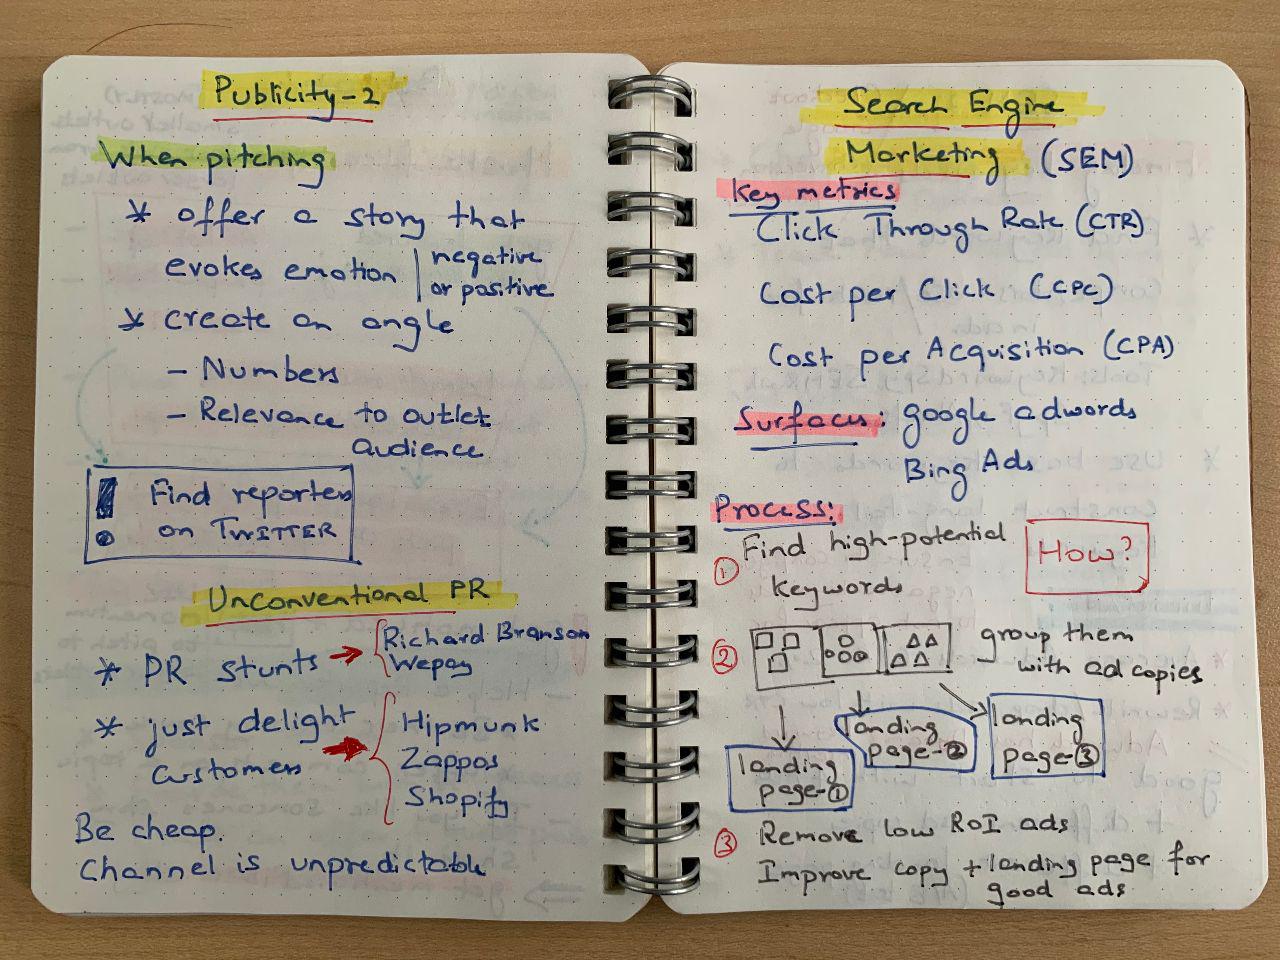 Publicity-2
When pitching
* offer a story that
evokes emotion | negative
or positive
* create an angle
- Numbers
- Relevance to outlet
audience
! Find reporters
on TWITTER
Unconventional PR
* PR stunts → { Richard Branson
Wepay
* just delight
customers → { Hipmunk
Zappos
Shopify
Be cheap.
Channel is unpredictable
Search Engine
Marketing (SEM)
Key metrics
Click Through Rate (CTR)
Cost per Click (CPC)
Cost per Acquisition (CPA)
Surfaces: google adwords
Bing Ads
Process:
① Find high-potential
keywords
How?
② group them
with ad copies
landing
page-①
landing
page-②
landing
page-③
③ Remove low RoI ads
Improve copy + landing page for
good ads